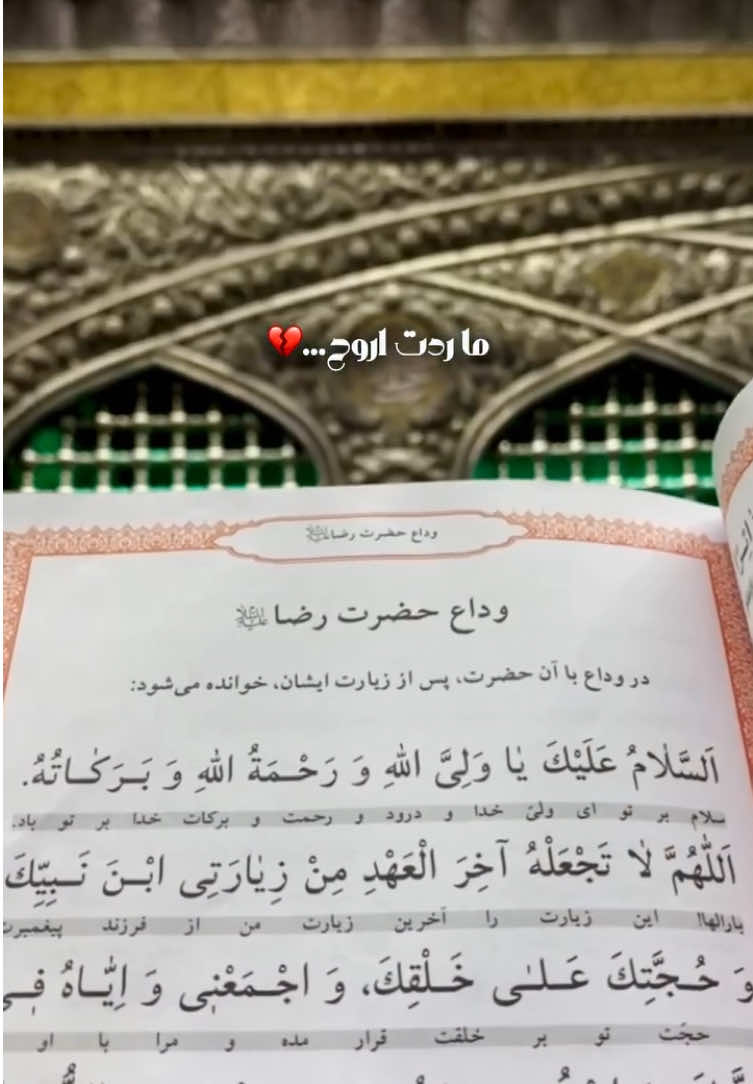 ما ردت اروح...💔
وداع حضرت رضا
وداع حضرت رضا
در وداع با آن حضرت، پس از زیارت ایشان، خوانده می‌شود:
اَلسَّلٰامُ عَلَيْكَ يٰا وَلِىَّ اللهِ وَ رَحْـمَةُ اللهِ وَ بَـرَكٰـاتُهُ.
سلام بر تو ای ولیّ خدا و درود و رحمت و برکات خدا بر تو باد.
اَللّٰهُمَّ لٰا تَجْعَلْهُ آخِرَ الْعَهْدِ مِنْ زِيٰارَتِى ابْـنَ نَـبِيِّكَ
بارالها! این زیارت را آخرین زیارت من از فرزند پیغمبرت
وَ حُـجَّتِكَ عَـلـىٰ خَـلْقِكَ، وَ اجْـمَعْنِى وَ اِيّٰـاهُ فِـى
حجّت تو بر خلقت قرار مده و مرا با او